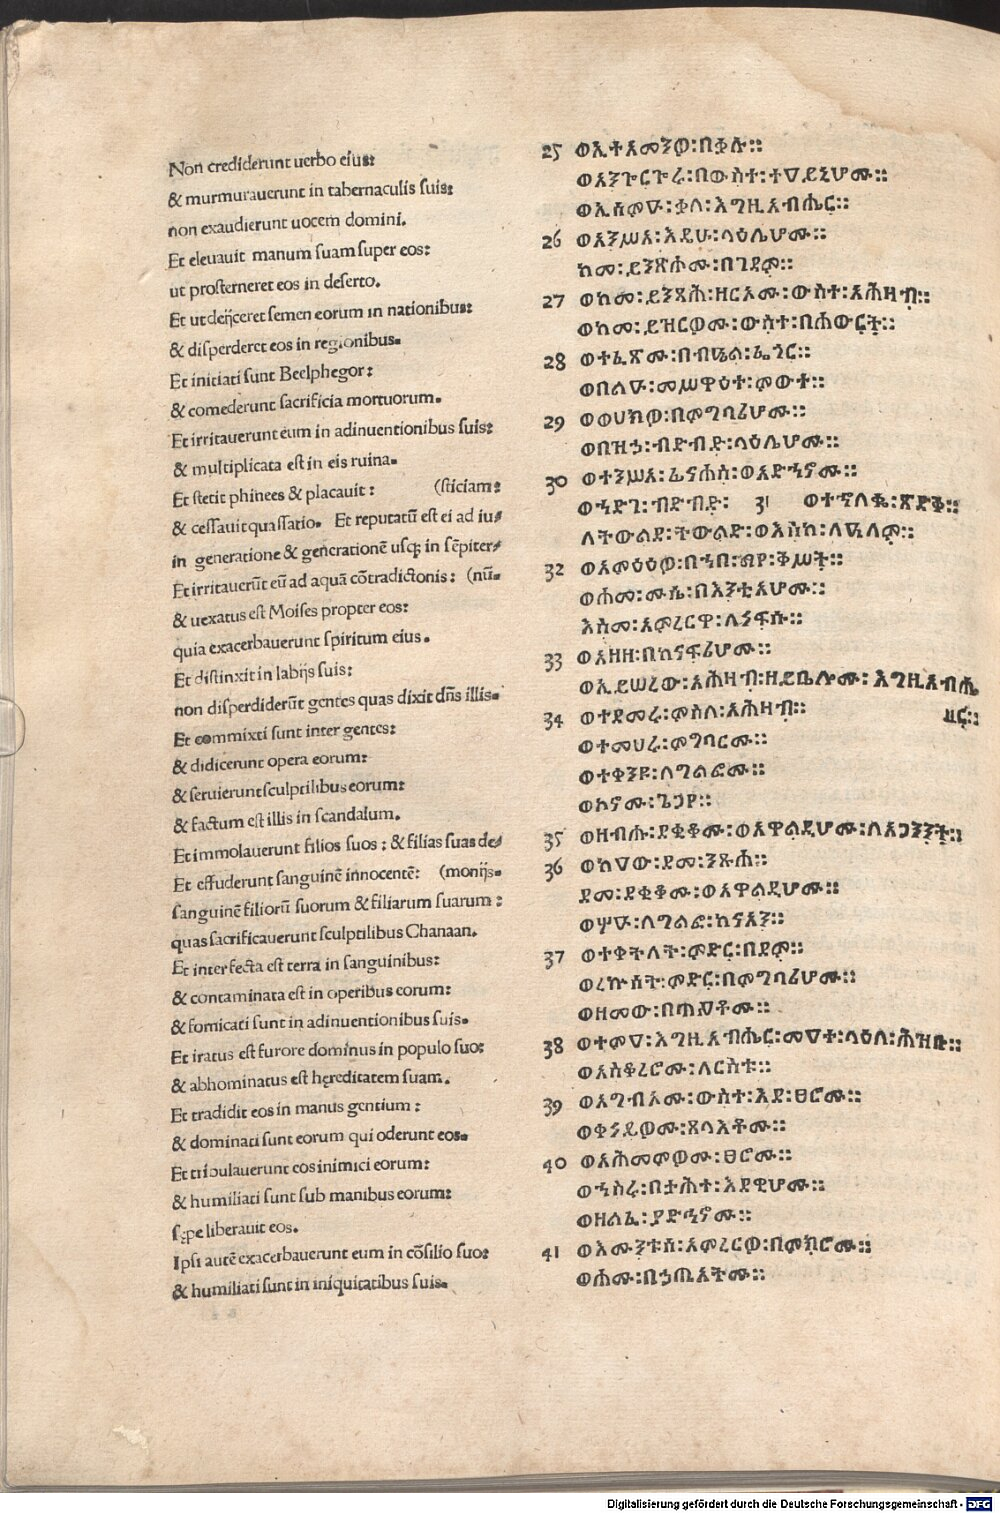 Non crediderunt uerbo eius:
& murmurauerunt in tabernaculis suis:
non exaudierunt uocem domini.
Et eleuauit manum suam super eos:
ut prosterneret eos in deserto.
Et ut deijceret semen eorum in nationibus:
& disperderet eos in regionibus.
Et initiati sunt Beelphegor:
& comederunt sacrificia mortuorum.
Et irritauerunt eum in adinuentionibus suis:
& multiplicata est in eis ruina.
Et stetit phinees & placauit : (sticiam:
& cessauit quassatio. Et reputatū est ei ad iu/
in generatione & generationē usq; in sēpiter/
Et irritauerūt eū ad aquā cōtradictonis : (nū.
& uexatus est Moises propter eos:
quia exacerbauerunt spiritum eius.
Et distinxit in labijs suis:
non disperdiderūt gentes quas dixit dn̄s illis.
Et commixti sunt inter gentes:
& didicerunt opera eorum:
& seruierunt sculptilibus eorum:
& factum est illis in scandalum.
Et immolauerunt filios suos : & filias suas de/
Et effuderunt sanguinē innocentē: (monijs.
sanguinē filiorū suorum & filiarum suarum :
quas sacrificauerunt sculptilibus Chanaan.
Et interfecta est terra in sanguinibus:
& contaminata est in operibus eorum:
& fornicati sunt in adinuentionibus suis.
Et iratus est furore dominus in populo suo:
& abhominatus est hęreditatem suam.
Et tradidit eos in manus gentium :
& dominati sunt eorum qui oderunt eos.
Et tribulauerunt eos inimici eorum:
& humiliati sunt sub manibus eorum:
sępe liberauit eos.
Ipsi autē exacerbauerunt eum in cōsilio suo:
& humiliati sunt in iniquitatibus suis.
25 ወኢተአመንዎ፡በቃሉ።
ወአንጐርጐሩ፡በውስተ፡ተዐይኒሆሙ።
ወኢሰምዑ፡ቃለ፡እግዚአብሔር።
26 ወአንሥአ፡እዴሁ፡ላዕሌሆሙ።
ከመ፡ይንጽሖሙ፡በገዳም።
27 ወከመ፡ይንጻሕ፡ዘርኦሙ፡ውስተ፡አሕዛብ።
ወከመ፡ይዝርዎሙ፡ውስተ፡በሐውርት።
28 ወተፈጸሙ፡በብዔል፡ፌጎር።
ወበልዑ፡መሥዋዕተ፡ምውተ።
29 ወወሀክዎ፡በምግባሪሆሙ።
ወበዝኃ፡ብድብድ፡ላዕሌሆሙ።
30 ወተንሥአ፡ፊናሐስ፡ወአድኀኖሙ።
ወኀድገ፡ብድብድ፡ 31 ወተኆለቈ፡ጽድቅ።
ለትውልደ፡ትውልድ፡ወእስከ፡ለዓለም።
32 ወአምዕዕዎ፡በኀበ፡ማየ፡ቅሥት።
ወሐመ፡ሙሴ፡በእንቲአሆሙ።
እስመ፡አምረርዋ፡ለነፍሱ።
33 ወአዘዘ፡በከናፍሪሆሙ።
ወኢይሠረው፡አሕዛብ፡ዘይቤሎሙ፡እግዚአብሔ
ር።
34 ወተደመሩ፡ምስለ፡አሕዛብ።
ወተመሀሩ፡ምግባርሙ።
ወተቀንዩ፡ለግልፎሙ።
ወኮኖሙ፡ጌጋየ።
35 ወዘብሑ፡ደቂቆሙ፡ወአዋልዲሆሙ፡ለአጋንንት።
36 ወከዐው፡ደመ፡ንጹሕ።
ደመ፡ደቂቆሙ፡ወአዋልዲሆሙ።
ወሦዑ፡ለግልፎ፡ከናአን።
37 ወተቀትለት፡ምድር፡በደም።
ወረኵሰት፡ምድር፡በምግባሪሆሙ።
ወዘመው፡በጣዖቶሙ።
38 ወተምዐ፡እግዚአብሔር፡መዐተ፡ላዕለ፡ሕዝቡ።
ወአስቆረሮሙ፡ለርስቱ።
39 ወአግብኦሙ፡ውስተ፡እደ፡ፀሮሙ።
ወቀነይዎሙ፡ጸላእቶሙ።
40 ወአሕመምዎሙ፡ፀሮሙ።
ወኀስሩ፡በታሕተ፡እደዊሆሙ።
ወዘልፈ፡ያድኅኖሙ።
41 ወእሙንቱሰ፡አምረርዎ፡በምክሮሙ።
ወሐሙ፡በኃጢአትሙ።
Digitalisierung gefördert durch die Deutsche Forschungsgemeinschaft - DFG